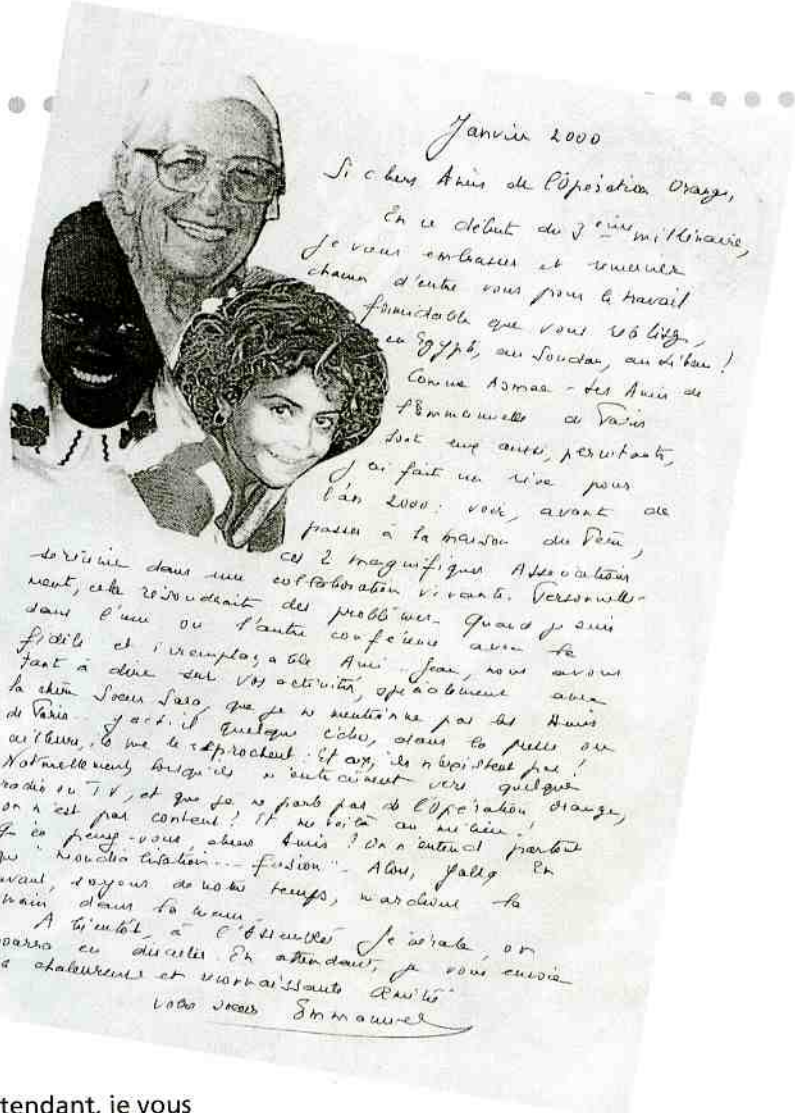 Janvier 2000
Si chers Amis de l'Opération Orange,
En ce début du 3ème millénaire,
je veux embrasser et remercier
chacun d'entre vous pour le travail
formidable que vous réalisez,
en Egypte, au Soudan, au Liban !
Comme Asmae - Les Amis de
S. Emmanuelle de Paris
sont eux aussi, percutants,
j'ai fait un rêve pour
l'an 2000 : voir, avant de
passer à la maison du Père,
ces 2 magnifiques Associations
s'unir dans une collaboration vivante. Personnelle-
ment, cela résoudrait des problèmes. Quand je suis
dans l'une ou l'autre conférence avec le
fidèle et irremplaçable Ami Jean, nous avons
tant à dire sur vos activités, spécialement avec
la chère Soeur Sara, que je ne mentionne pas les Amis
de Paris... Y a-t-il quelque écho, dans la presse ou
ailleurs, ils me le reprochent : Et eux, ils n'existent pas !
Naturellement, lorsqu'ils m'entraînent vers quelque
radio ou TV, et que je ne parle pas de l'Opération Orange,
on n'est pas content ! Et me voilà au milieu !
Qu'en pensez-vous, chers Amis ? On n'entend partout
que "mondialisation... fusion". Alors, Yalla En
avant, soyons de notre temps, marchons la
main dans la main.
A bientôt, à l'Assemblée Générale, on
pourra en discuter. En attendant, je vous envoie
ma chaleureuse et reconnaissante Amitié
votre soeur Emmanuelle
tendant, je vous